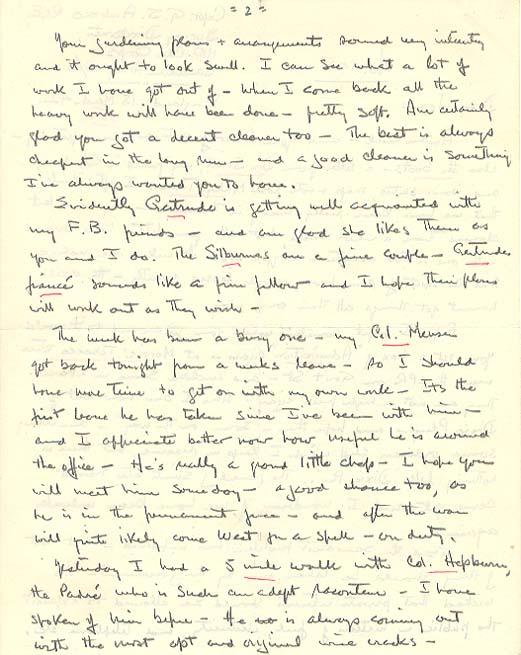 = 2 =
Your gardening plans + arrangements sound very interesting
and it ought to look swell. I can see what a lot of
work I have got out of - when I come back all the
heavy work will have been done - pretty soft. Am certainly
glad you got a decent cleaner too - The best is always
cheapest in the long run - and a good cleaner is something
I've always wanted you to have.
Evidently Gertrude is getting well acquainted with
my F.B. friends - and am glad she likes them as
you and I do. The Silburnes are a fine couple - Gertrudes
fiancé sounds like a fine fellow and I hope their plans
will work out as they wish -
The week has been a busy one - my Col.
got back tonight from a weeks leave - so I should
have more time to get on with my own work - Its the
first leave he has taken since I've been with him -
and I appreciate better now how useful he is around
the office - He's really a grand little chap - I hope you
will meet him someday - a good chance too, as
he is in the permanent force - and after the war
will quite likely come West for a spell - on duty.
Yesterday I had a 5 mile walk with Col. Hepburn,
the Padré who is such an adept raconteur - I have
spoken of him before - He is always coming out
with the most apt and original wise cracks -